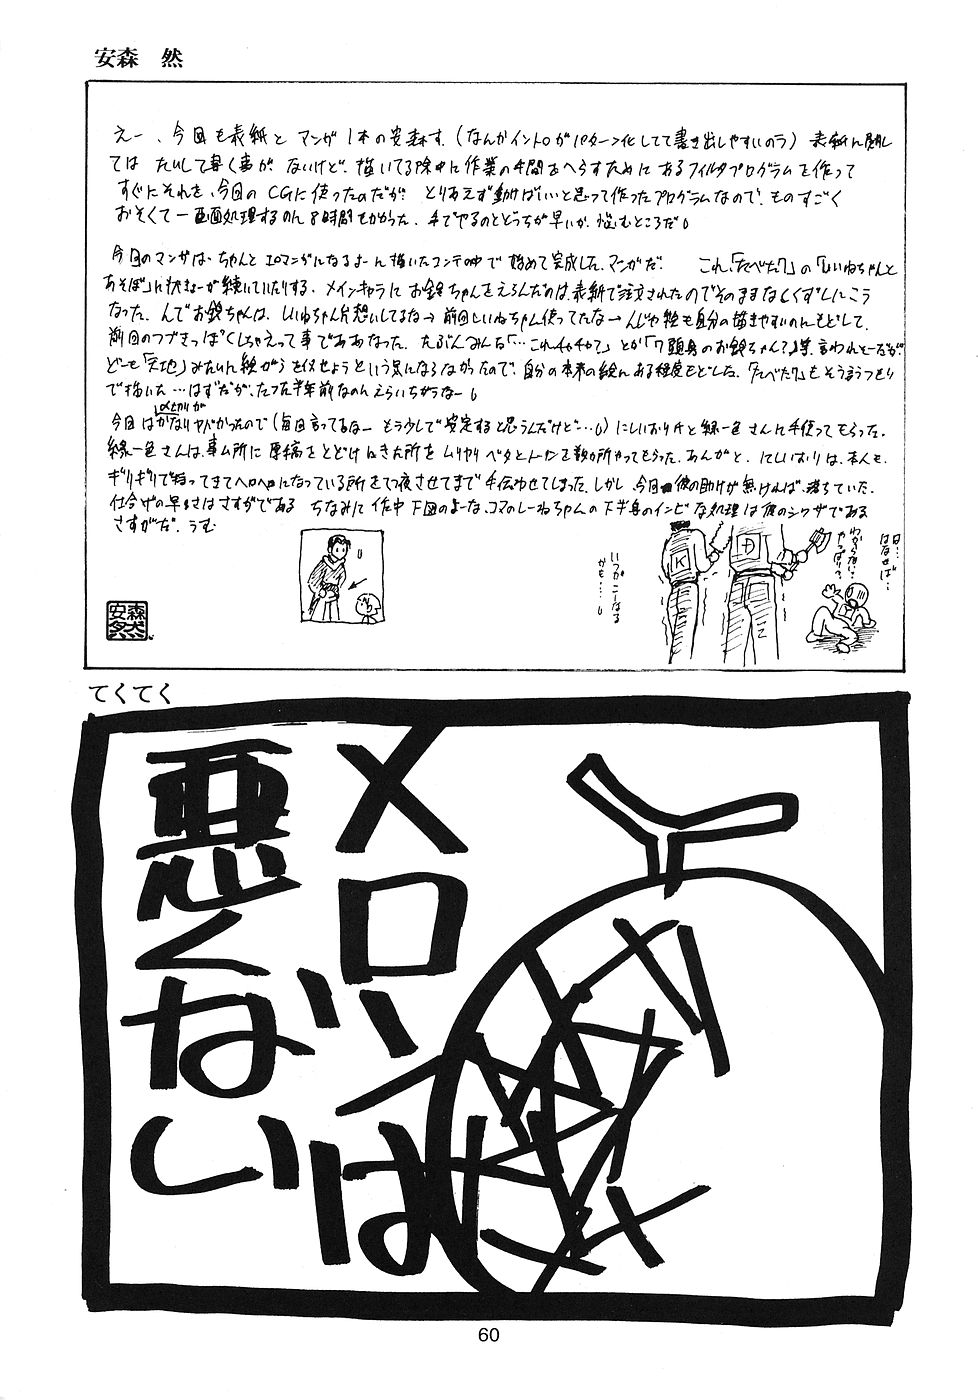 安森 然
えー、今回も表紙とマンガ1本の安森す。(なんかイントロがパターン化してて書き出しやすいのう) 表紙に関し
ては たいして書く事がないけど、描いてる途中に作業の手間をへらすために あるフィルタプログラムを作って
すぐにそれを、今回の CGに使ったのだが とりあえず動けばいいと思って作ったプログラムなので、ものすごく
おそくて一画面処理するのに8時間もかかった。手でやるのとどっちが早いか、悩むところだ
今回のマンガは、ちゃんと エロマンガになるよーに描いたコンテの中で 始めて完成した、マンガだ。 これ、「たべた?」の「しいねちゃんと
あそぼ」に状きょーが続いていたりする。メインキャラに お鈴ちゃんをえらんだのは、表紙で注文されたのでそのままなしくずしにこう
なった。んでお鈴ちゃんは、しいねちゃん片想いしてるな→前回しいねちゃん使ってたな→んじゃ絵も自分の描きやすいのにもどして、
前回のつづきっぽくしちゃえって事でああなった。たぶんみんな「…これチャチャ?」とか「7頭身のお鈴ちゃん?」等、言われそーだが
どーも「天地」みたいに絵がらを似せようという気にならなかったので、自分の本来の絵に ある程度もどした。「たべた?」もそうゆうつもり
で描いた…はずだが、たった半年前なのにえらいちがうなー
〆切りが
今回はかなりヤバかったので(毎回言ってるなー もう少しで安定すると思うんだけど…)にしいおり氏と緑一色さんに手伝ってもらった。
緑一色さんは、事ム所に原稿をとどけにきた所を ムリヤリ ベタとトーンを数か所やってもらった。ありがと。にしいおりは、本人も、
ギリギリで持ってきてヘロヘロになっている所をてつ夜させてまで手伝わせてしまった。しかし、今回 彼の助けが無ければ、落ちていた。
仕上げの早さはさすがである ちなみに作中下図のよーな、コマのしーねちゃんの下半身のインビな処理は彼のシワザである
さすがだ。うむ
いつかこーなるかも…
K
D
わからない…やっぱり?
はなせば…
安森然
てくてく
メロンは
悪くない
60